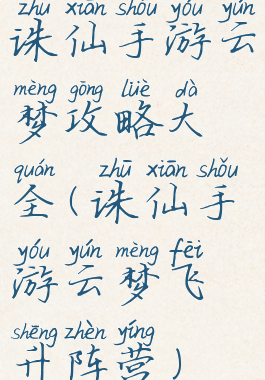 zhū xiān shǒu yóu yún
诛仙手游云
mèng gōng lüè dà
梦攻略大
quán ( zhū xiān shǒu
全(诛仙手
yóu yún mèng fēi
游云梦飞
shēng zhèn yíng
升阵营)